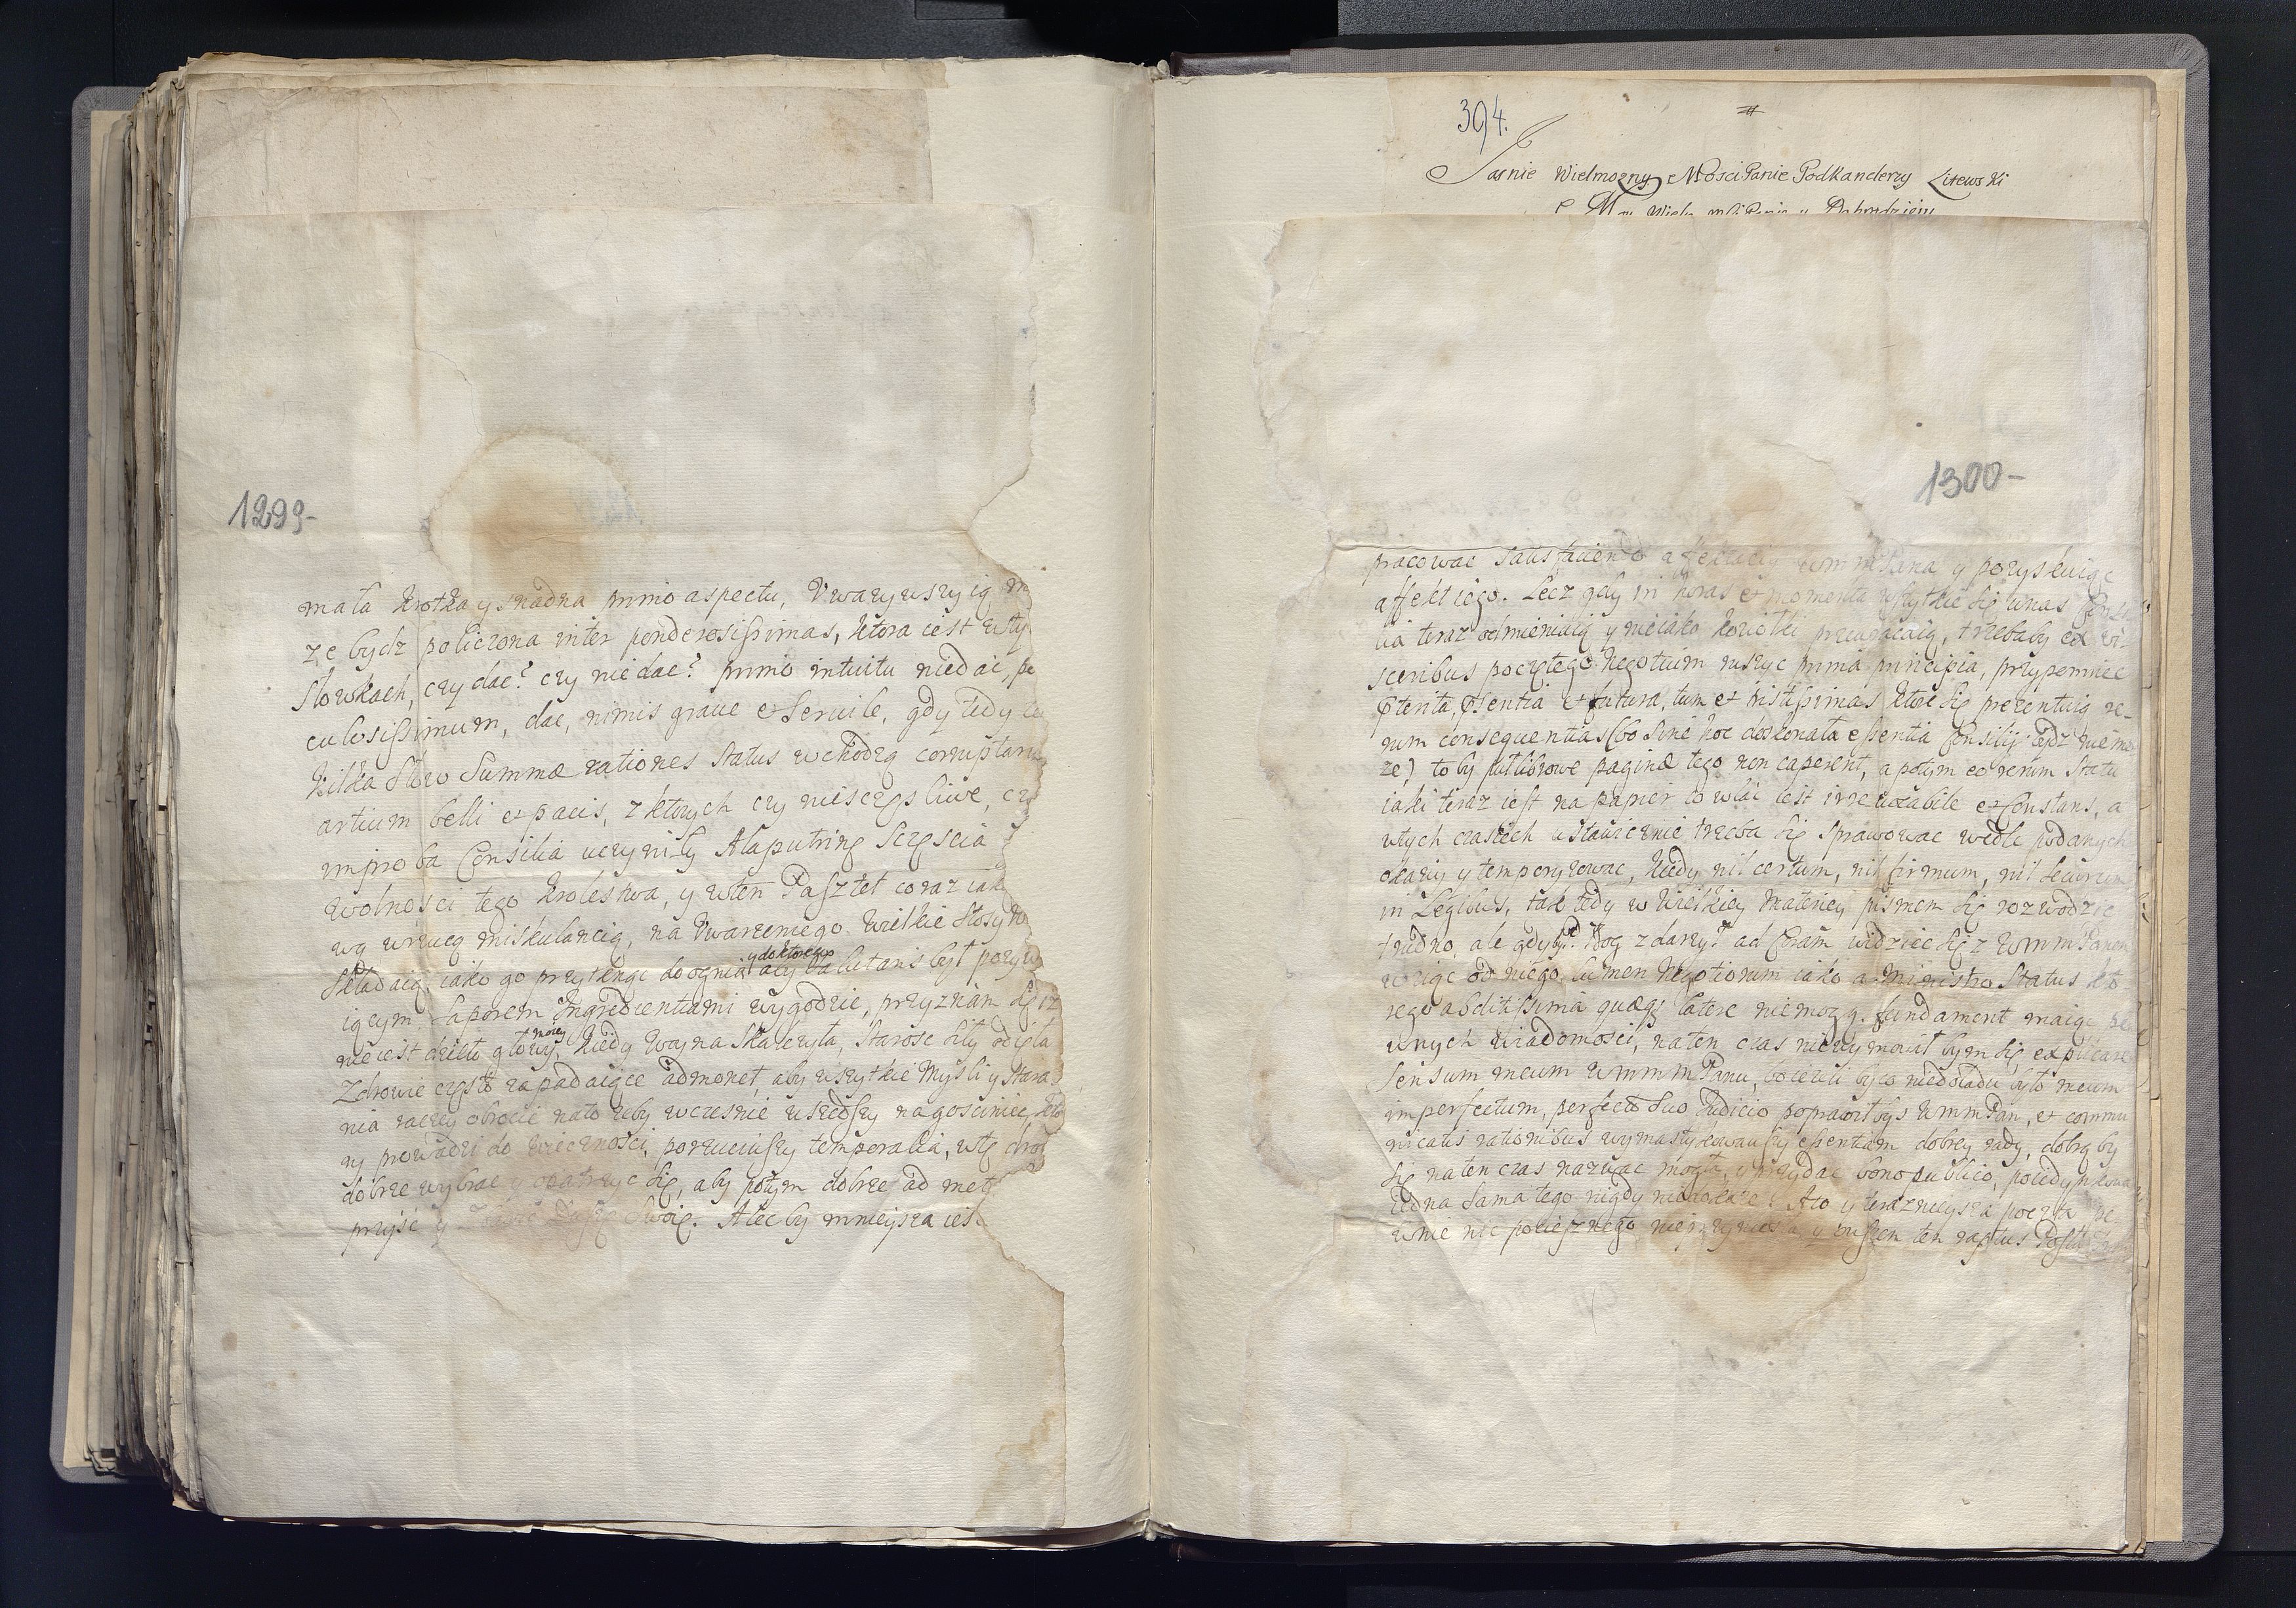 1299-
mała krotka y snadna primo aspectu, Uwazywszy ią
ze bydz policzona inter ponderosissimas, ktora iest w
słowkach, czy dac? czy nie dac? primo intuitu niedac,
culosissimum, dac, nimis graue et seruile, gdy tedy
kilka słow summæ rationes status wchodzą
artium belli et pacis, z ktorych czy niesczęsliwe,
improba Consilia uczyniły Ala putrinę sczęscia
wolnosci tego krolestwa, y wten Pasztet coraz
wą wrzucą miskulancią, na Uwarzenie go wielkie stosy
składaią, iako go przytknąc do ognia
y doktorego
aby był
iącym saporem Ingredientiami wygodzic, przyznam się
nie iest dzieło głowy
moiey
, kiedy Woyna skaleczyła, starosc siły odięła
Zdrowie często zapadaiące admonet, aby wszytkie Mysli y stara
nia raczey obrocic na to zeby wczesnie wszedszy na gosciniec,
ry prowadzi do wiecznosci, porzuciwszy temporalia, w tę
dobrze wybrac y opatrzyc się, aby potym dobrze ad
przyść y Duszę swoię. Alec by mnieysza
394.
Jasnie Wielmozny Mosci Panie Podkanclerzy Litewski
1300-
pracowac satisfaciendo affektacij wmmPana y pozyskuiąc
affekt iego. Lecz gdy in horas et momenta wszytkie się u nas
lia teraz odmieniaią y nieiako koziołki przewracaią, trzebaby ex vi-
sceribus poczętego Negotium ruszyc prima principia, przypomniec
præterita, præsentia et futura, tum et tristissimas ktore się prezentuią re-
rum consequentias (bo sine hoc doskonała essentia Consilij bydz niemo
ze) to by pułlibrowe paginæ tego non caperent, a potym eo rerum statu
iaki teraz iest na papier co wlac iest irreuocabile et Constans, a
w tych czasiech ustawicznie trzeba się sprawowac wedle podanych
okazij y temporyzowac, kiedy nil certum, nil firmum, nil securum
in Legibus, tak tedy w wielkiey Materiey pismem się rozwodzic
trudno, ale gdyby P. Bog zdarzył ad Coram widziec się z WmmPanem
od niego lumen Negotiorum iako a Ministro Status kto
rego abditissima quæq; latere niemogą. fundament maiąc pe
wnych wiadomosci, na ten czas niewymowiłbym się explicare
sensum meum WmmmPanu, bo iezeli by co niedokładu było meum
imperfectum, perfecto suo Iudicio poprawiłbys WmmPan, et commu
nicatis rationibus wymastykowawszy essentiam dobrey rady, dobrą by
się naten czas nazwac mogła, y przydac bono publico, poiedynkowa
iedna sama tego nigdy niedokaze. Ato y teraznieysza poczta pe
wnie nic pociesznego nieprzyniosła, y ten raptus